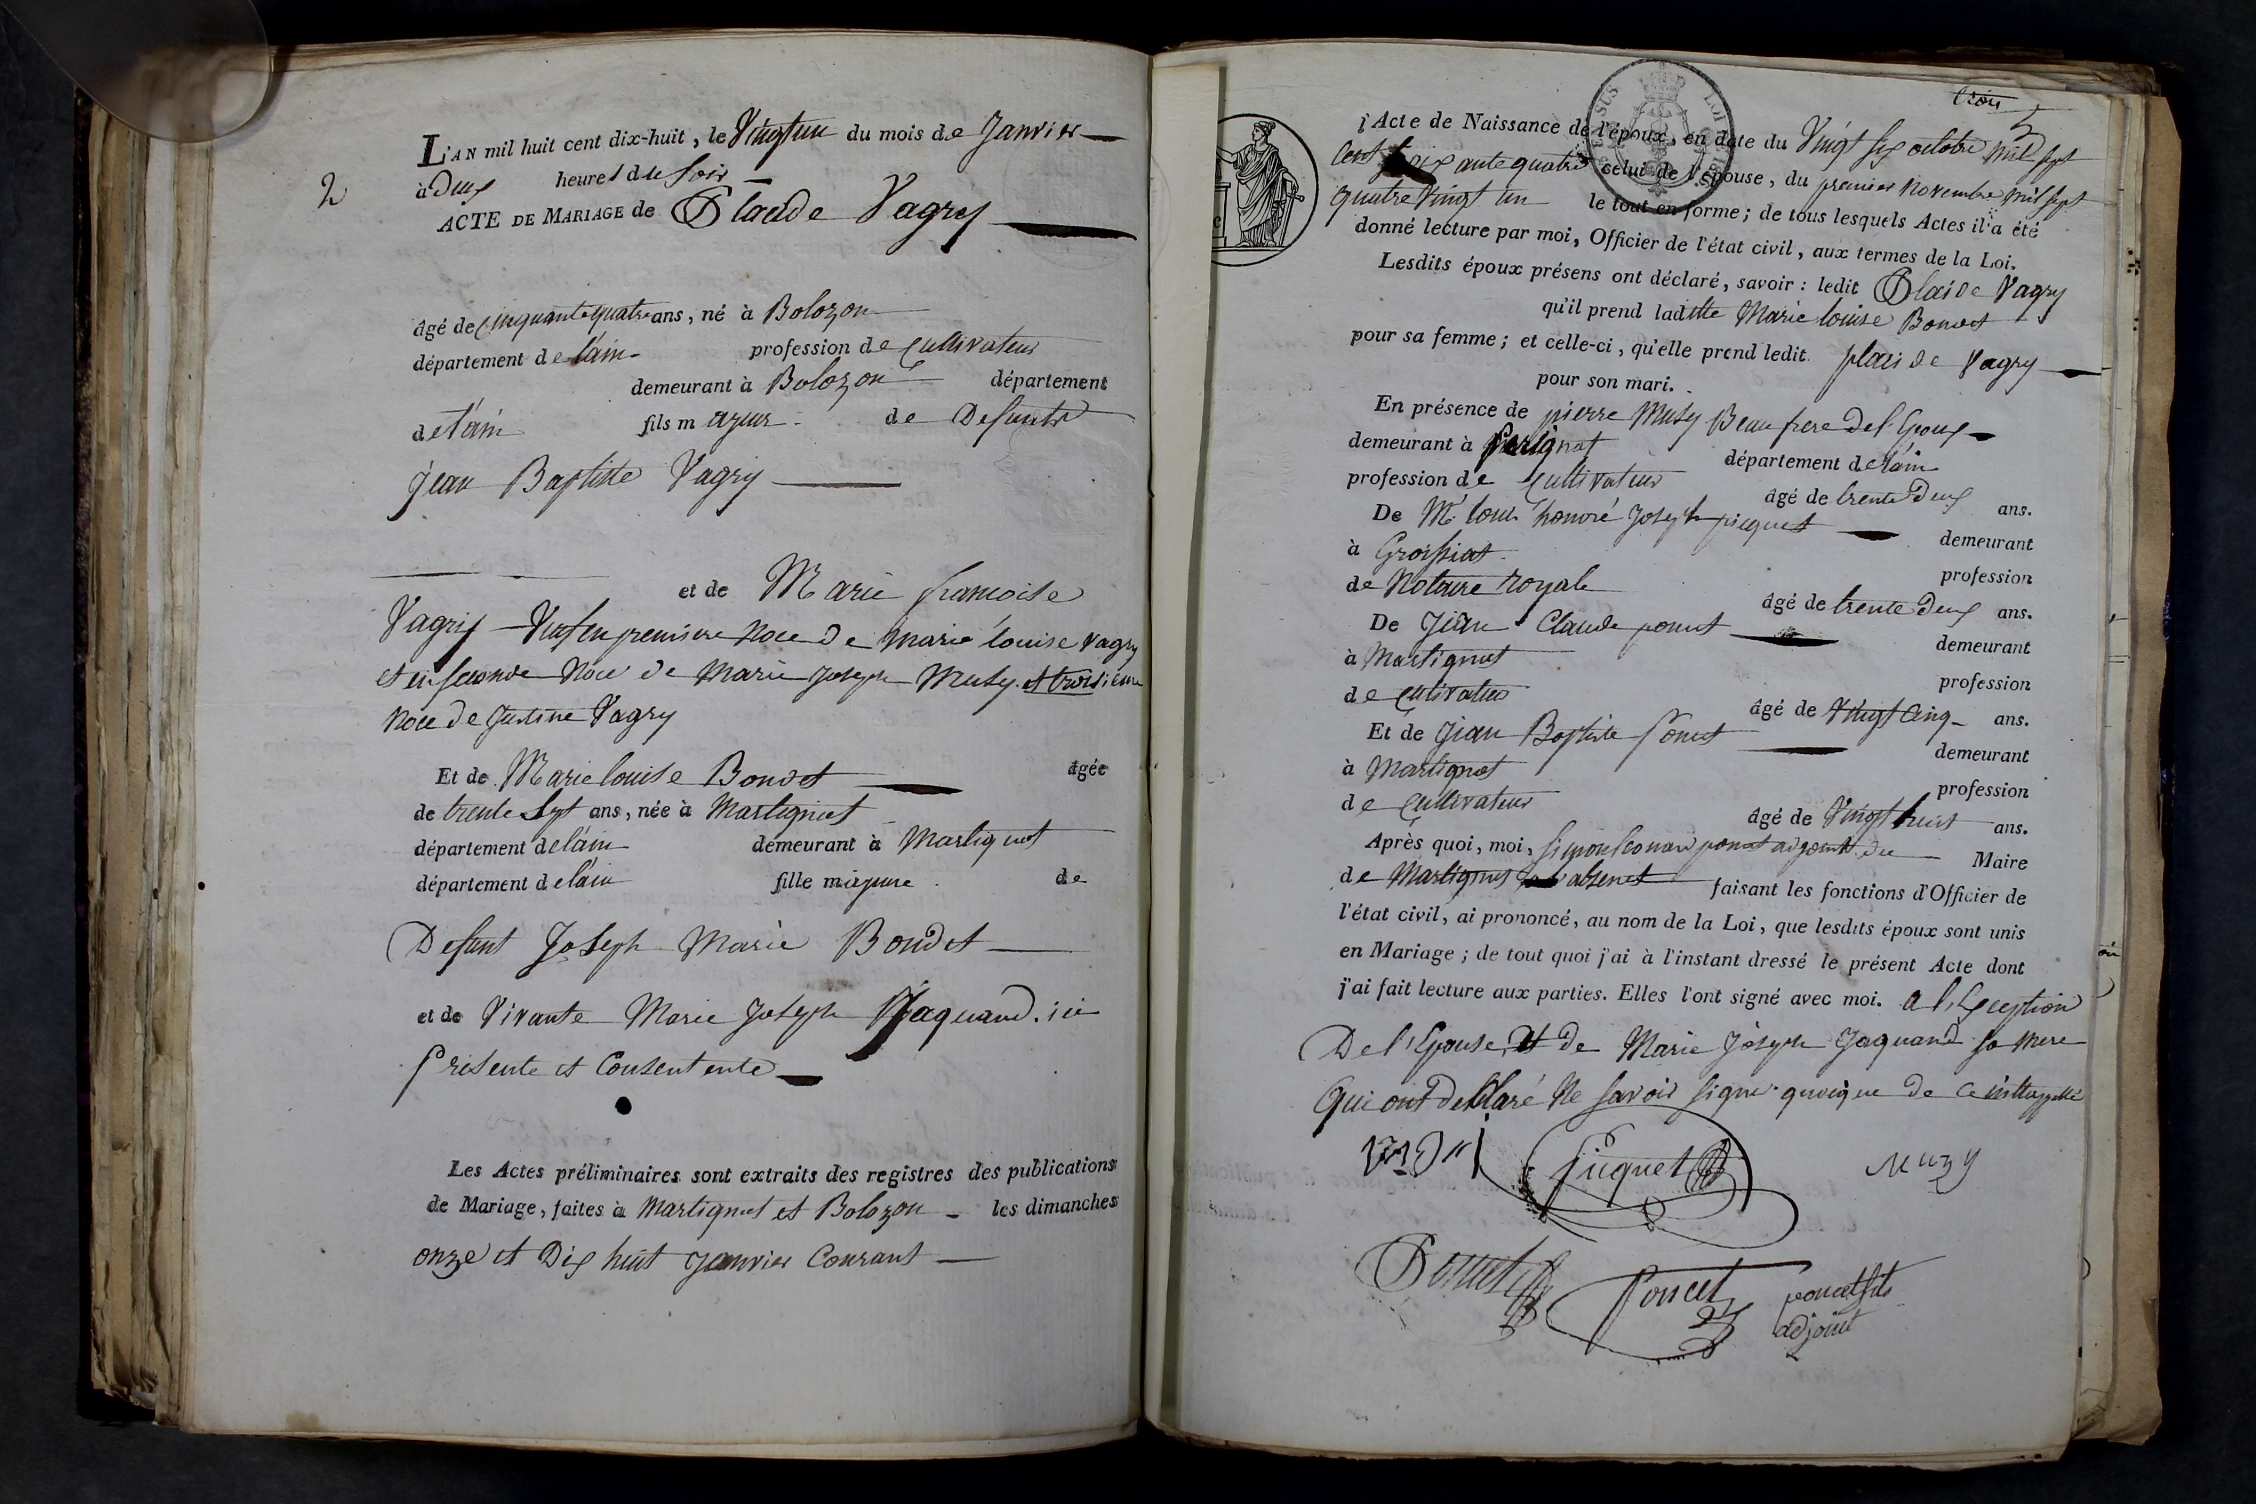 2
L'AN mil huit cent dix-huit, le Vingtun du mois de Janvier
à Deux heures du Soir
ACTE DE MARIAGE de Claude Vagry
âgé de cinquante quatre ans, né à Bolozon
département de l'ain profession de Cultivateur
demeurant à Bolozon département
de l'ain fils majeur de Defunts
Jean Baptiste Vagry
et de Marie francoise
Vagry Veuf en premiere Noce de Marie louise Vagry
et en seconde Noce de Marie Joseph Musy et troisième
Noce de Justine Vagry
Et de Marie louise Bondet âgée
de trente Sept ans, née à Martignat
département de l'ain demeurant à Martignat
département de l'ain fille majeure de
Defunt Joseph Marie Bondet
et de Vivante Marie Joseph Jaquand ici
Presente et Consentente
Les Actes préliminaires sont extraits des registres des publications
de Mariage, faites à Martignat et Bolozon les dimanches
onze et Dix huit Janvier Courant
trois
l'Acte de Naissance de l'époux, en date du Vingt six octobre mil sept
Cent soixante quatre celui de l'épouse, du premier Novembre mil sept
quatre Vingt un le tout en forme; de tous lesquels Actes il a été
donné lecture par moi, Officier de l'état civil, aux termes de la Loi.
Lesdits époux présens ont déclaré, savoir: ledit Claude Vagry
qu'il prend laditte Marie louise Bondet
pour sa femme; et celle-ci, qu'elle prend ledit Claude Vagry
pour son mari.
En présence de pierre Musy Beau frere De l'Epoux
demeurant à Perignat département de l'ain
profession de Cultivateur âgé de trente Deux ans.
De Mr. louis honoré Joseph picquet demeurant
à Groissiat profession
de Notaire royale âgé de trente Deux ans.
De Jean Claude poncet demeurant
à Martignat profession
de Cultivateur âgé de Vingt Cinq ans.
Et de Jean Baptiste Poncet demeurant
à Martignat profession
de Cultivateur âgé de Vingt huit ans.
Après quoi, moi, Simon leonard poncet adjoint du Maire
de Martignat absent faisant les fonctions d'Officier de
l'état civil, ai prononcé, au nom de la Loi, que lesdits époux sont unis
en Mariage; de tout quoi j'ai à l'instant dressé le présent Acte dont
j'ai fait lecture aux parties. Elles l'ont signé avec moi. a l'Exception
De l'Epouse, et de Marie Joseph Jaquand sa Mere
Qui ont Declaré Ne savoir signe quoique de ce
Picquet
Muzy
Poncet
Poncet
poncet fils
adjoint